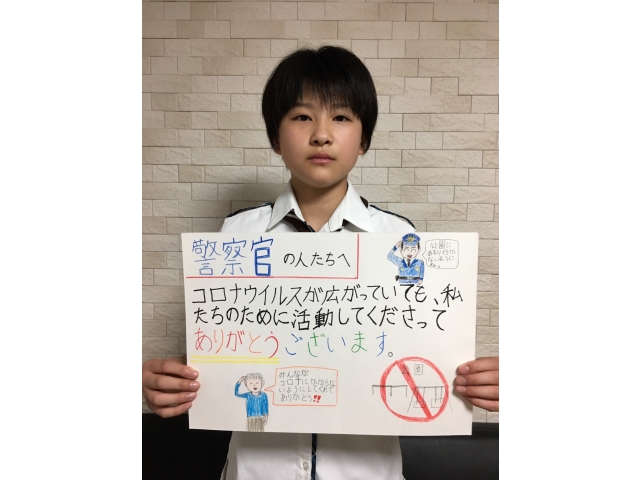 警察官の人たちへ
公園に
あまり行か
ないように
ね。
コロナウイルスが広がっていても、私
たちのために活動してくださって
ありがとうございます。
みんなが
コロナにかからな
いようにしてくれて
ありがとう!!
公園